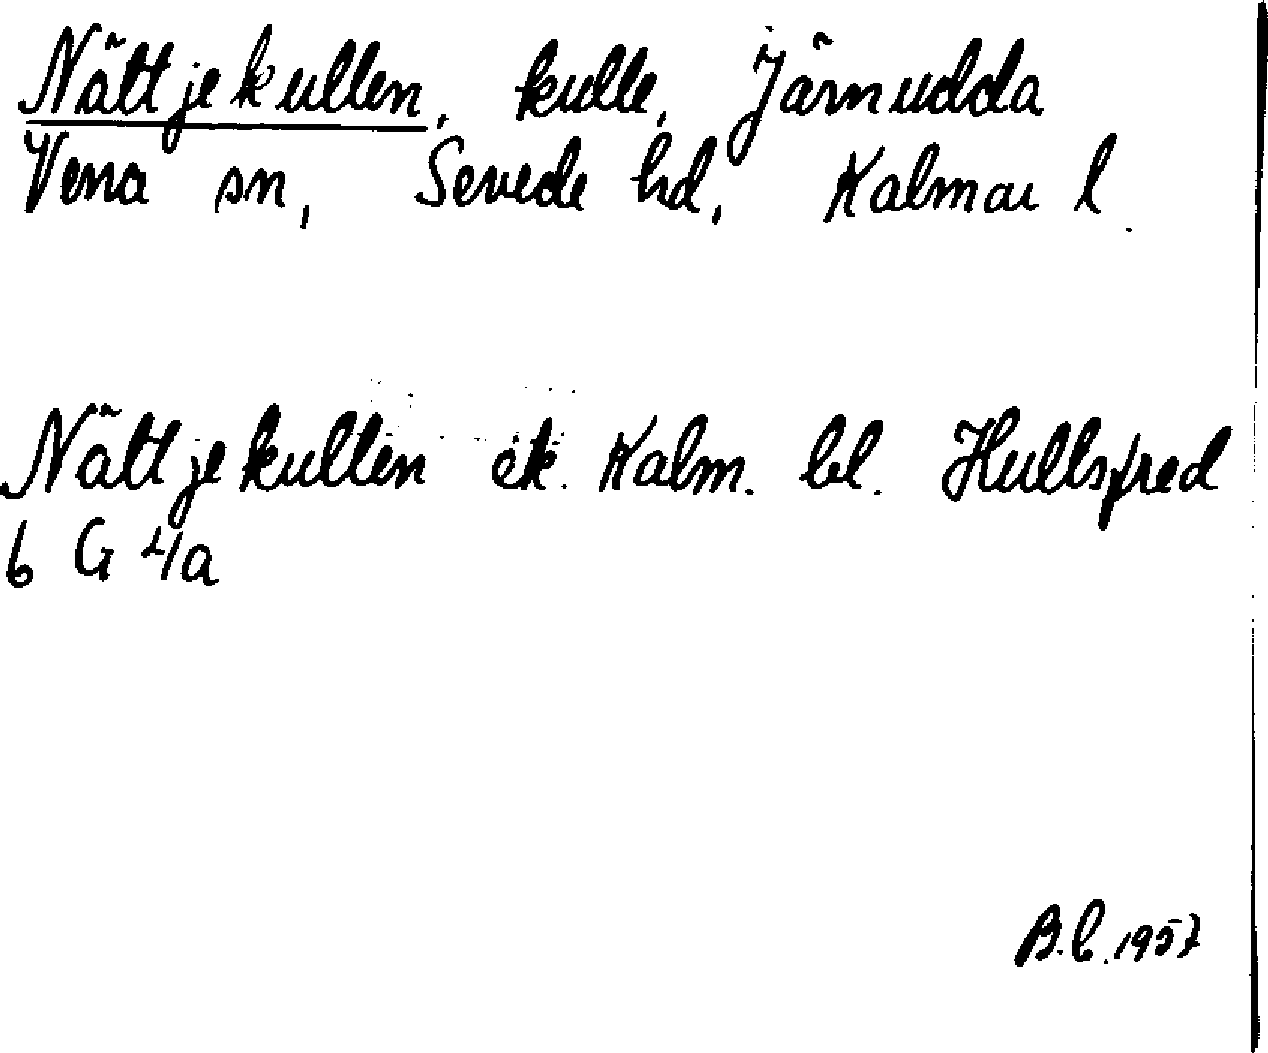 Nättjekullen, kulle, Järnudda
Vena sn, Sevede hd, Kalmar l.
Nättjekullen ek. Kalm. bl. Hultsfred
6 G 4a
B.C. 1957